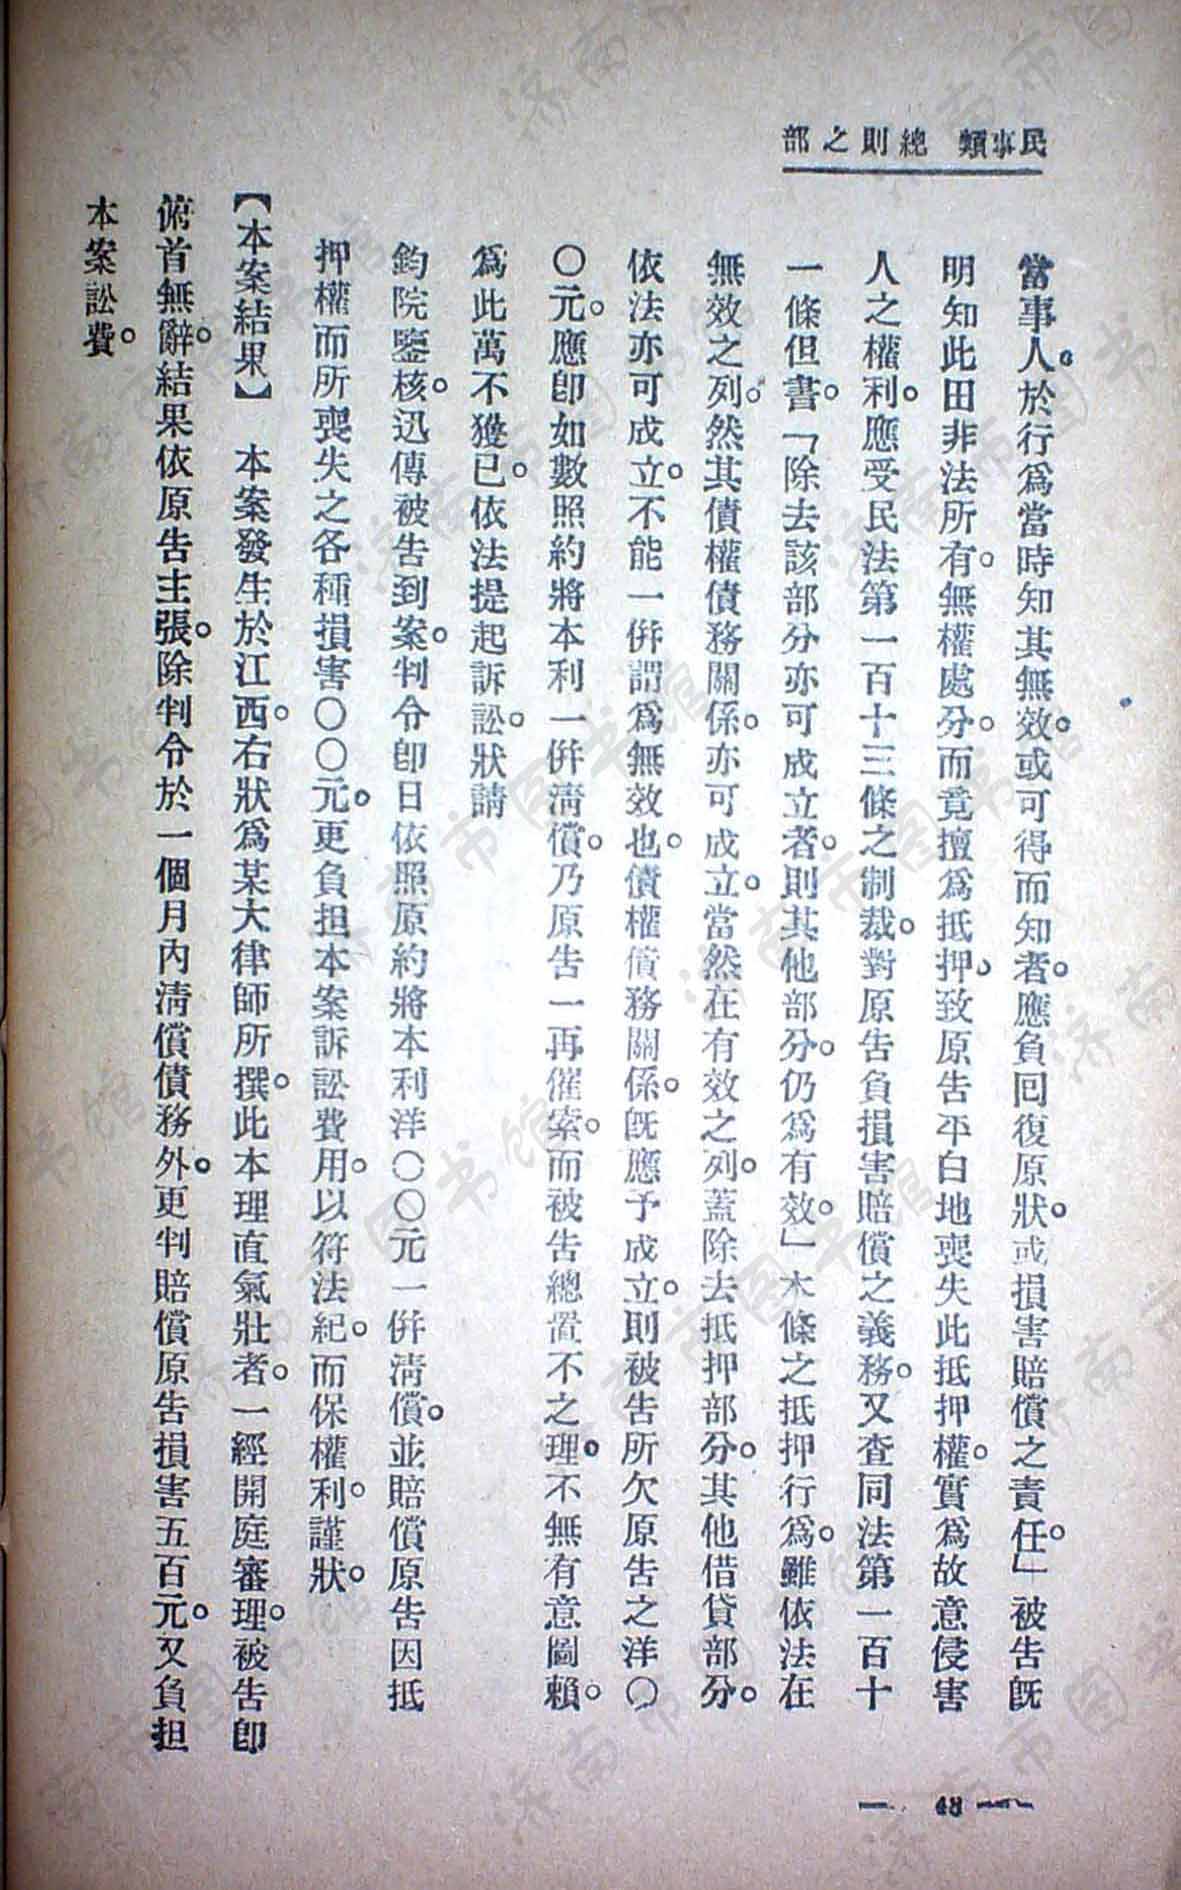 民事類　總則之部
當事人。於行爲當時知其無效。或可得而知者。應負回復原狀。或損害賠償之責任。」被告旣
明知此田非法所有。無權處分。而竟擅爲抵押。致原告平白地喪失此抵押權。實爲故意侵害
人之權利。應受民法第一百十三條之制裁。對原告負損害賠償之義務。又查同法第一百十
一條但書。「除去該部分亦可成立者。則其他部分。仍爲有效。」本條之抵押行爲。雖依法在
無效之列。然其債權債務關係。亦可成立。當然在有效之列。蓋除去抵押部分。其他借貸部分。
依法亦可成立。不能一倂謂爲無效也。債權債務關係。旣應予成立。則被告所欠原告之洋〇
〇元。應卽如數照約將本利一倂淸償。乃原告一再催索。而被告總置不之理。不無有意圖賴。
爲此萬不獲已。依法提起訴訟。狀請
鈞院鑒核。迅傳被告到案。判令卽日依照原約將本利洋〇〇元一倂淸償。並賠償原告因抵
押權而所喪失之各種損害〇〇元。更負担本案訴訟費用。以符法紀。而保權利。謹狀。
【本案結果】　本案發生於江西。右狀爲某大律師所撰。此本理直氣壯者。一經開庭審理。被告卽
俯首無辭。結果依原告主張。除判令於一個月內淸償債務外。更判賠償原告損害五百元。又負担
本案訟費。
— 48 —
济南市图书馆